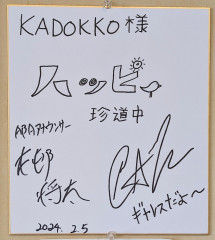 KADOKKO様
ハッピィ
珍道中
ABAアナウンサー
将太
ギャレスだよ〜
2024.2.5